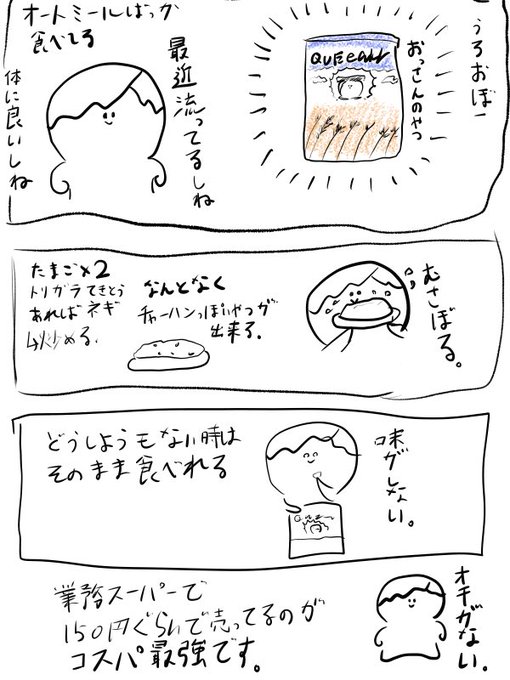 うろおぼー
QUEcauy
おっさんのやつ
最近流ってるしね
オートミールばっか
食べてる
体に良いしね
むさぼる。
なんとなく
チャーハンっぽいやつが
出来る。
たまご×2
トリガラてきとう
あればネギ
炒める.
味がしない。
どうしようもない時は
そのまま食べれる
オチがない.
業務スーパーで
150円ぐらいで売ってるのが
コスパ最強です。